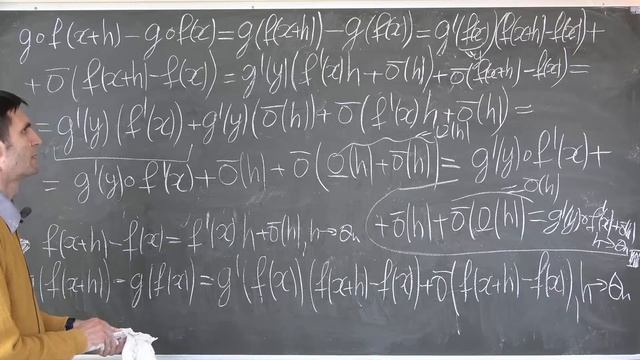 g∘f(x+h) − g∘f(x) = g(f(x+h)) − g(f(x)) = g'(f(x))(f(x+h) − f(x)) +
+ o̅(f(x+h) − f(x)) = g'(y)(f'(x)h + o̅(h)) + o̅(f(x+h) − f(x)) =
= g'(y)(f'(x)) + g'(y)(o̅(h)) + o̅(f'(x)h + o̅(h)) =
= g'(y)∘f'(x) + o̅(h) + o̅(O(h) + o̅(h)) = g'(y)∘f'(x) +
+ o̅(h) + o̅(O(h)) = g'(y)∘f'(x) + o̅(h)
h→θn
f(x+h) − f(x) = f'(x)h + o̅(h), h→θn
g(f(x+h)) − g(f(x)) = g'(f(x))(f(x+h) − f(x)) + o̅(f(x+h) − f(x)), h→θn